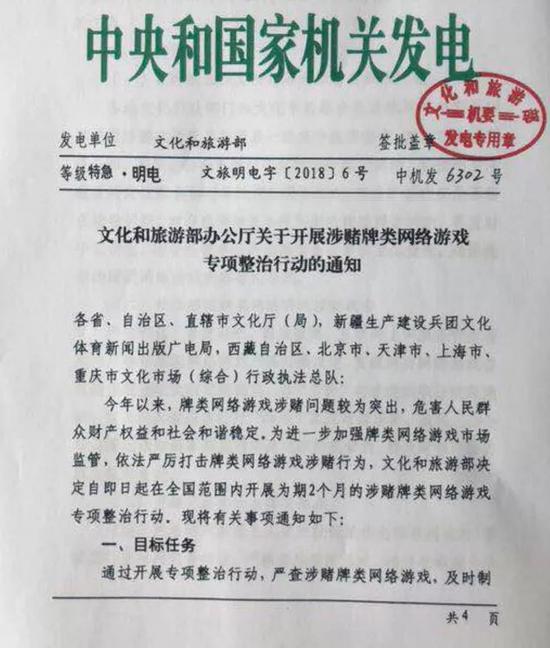 中央和国家机关发电
文化和旅游部
机要
发电专用章
发电单位 文化和旅游部 签批盖章
等级特急·明电 文旅明电字〔2018〕6号 中机发6302号
文化和旅游部办公厅关于开展涉赌牌类网络游戏
专项整治行动的通知
各省、自治区、直辖市文化厅(局),新疆生产建设兵团文化
体育新闻出版广电局,西藏自治区、北京市、天津市、上海市、
重庆市文化市场(综合)行政执法总队:
今年以来,牌类网络游戏涉赌问题较为突出,危害人民群
众财产权益和社会和谐稳定。为进一步加强牌类网络游戏市场
监管,依法严厉打击牌类网络游戏涉赌行为,文化和旅游部决
定自即日起在全国范围内开展为期2个月的涉赌牌类网络游戏
专项整治行动。现将有关事项通知如下:
一、目标任务
通过开展专项整治行动,严查涉赌牌类网络游戏,及时制
共4 页